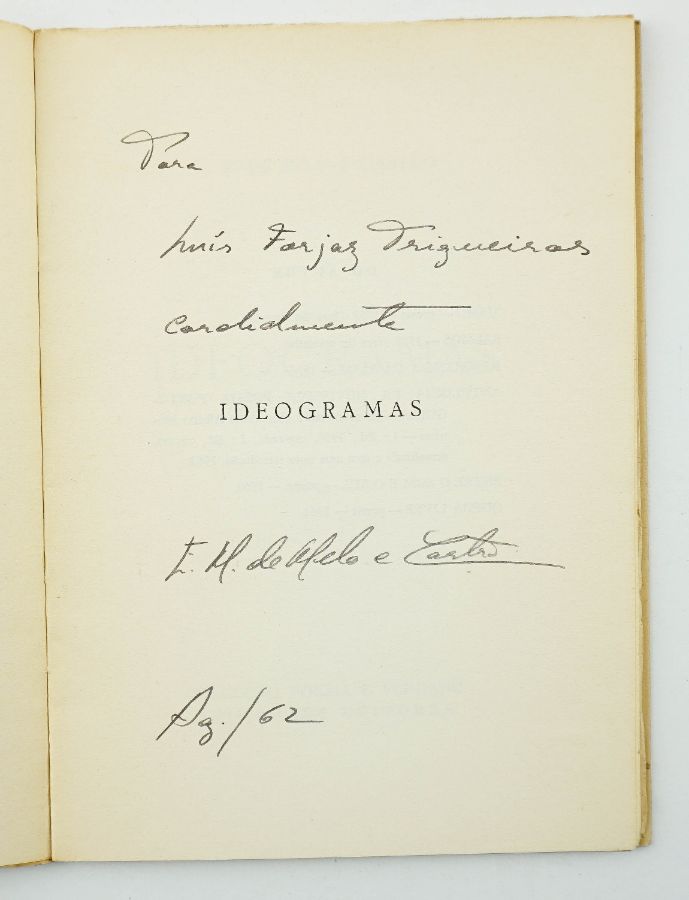 Para
Luís Forjaz Trigueiros
cordialmente
IDEOGRAMAS
E. M. de Melo e Castro
Ag./62